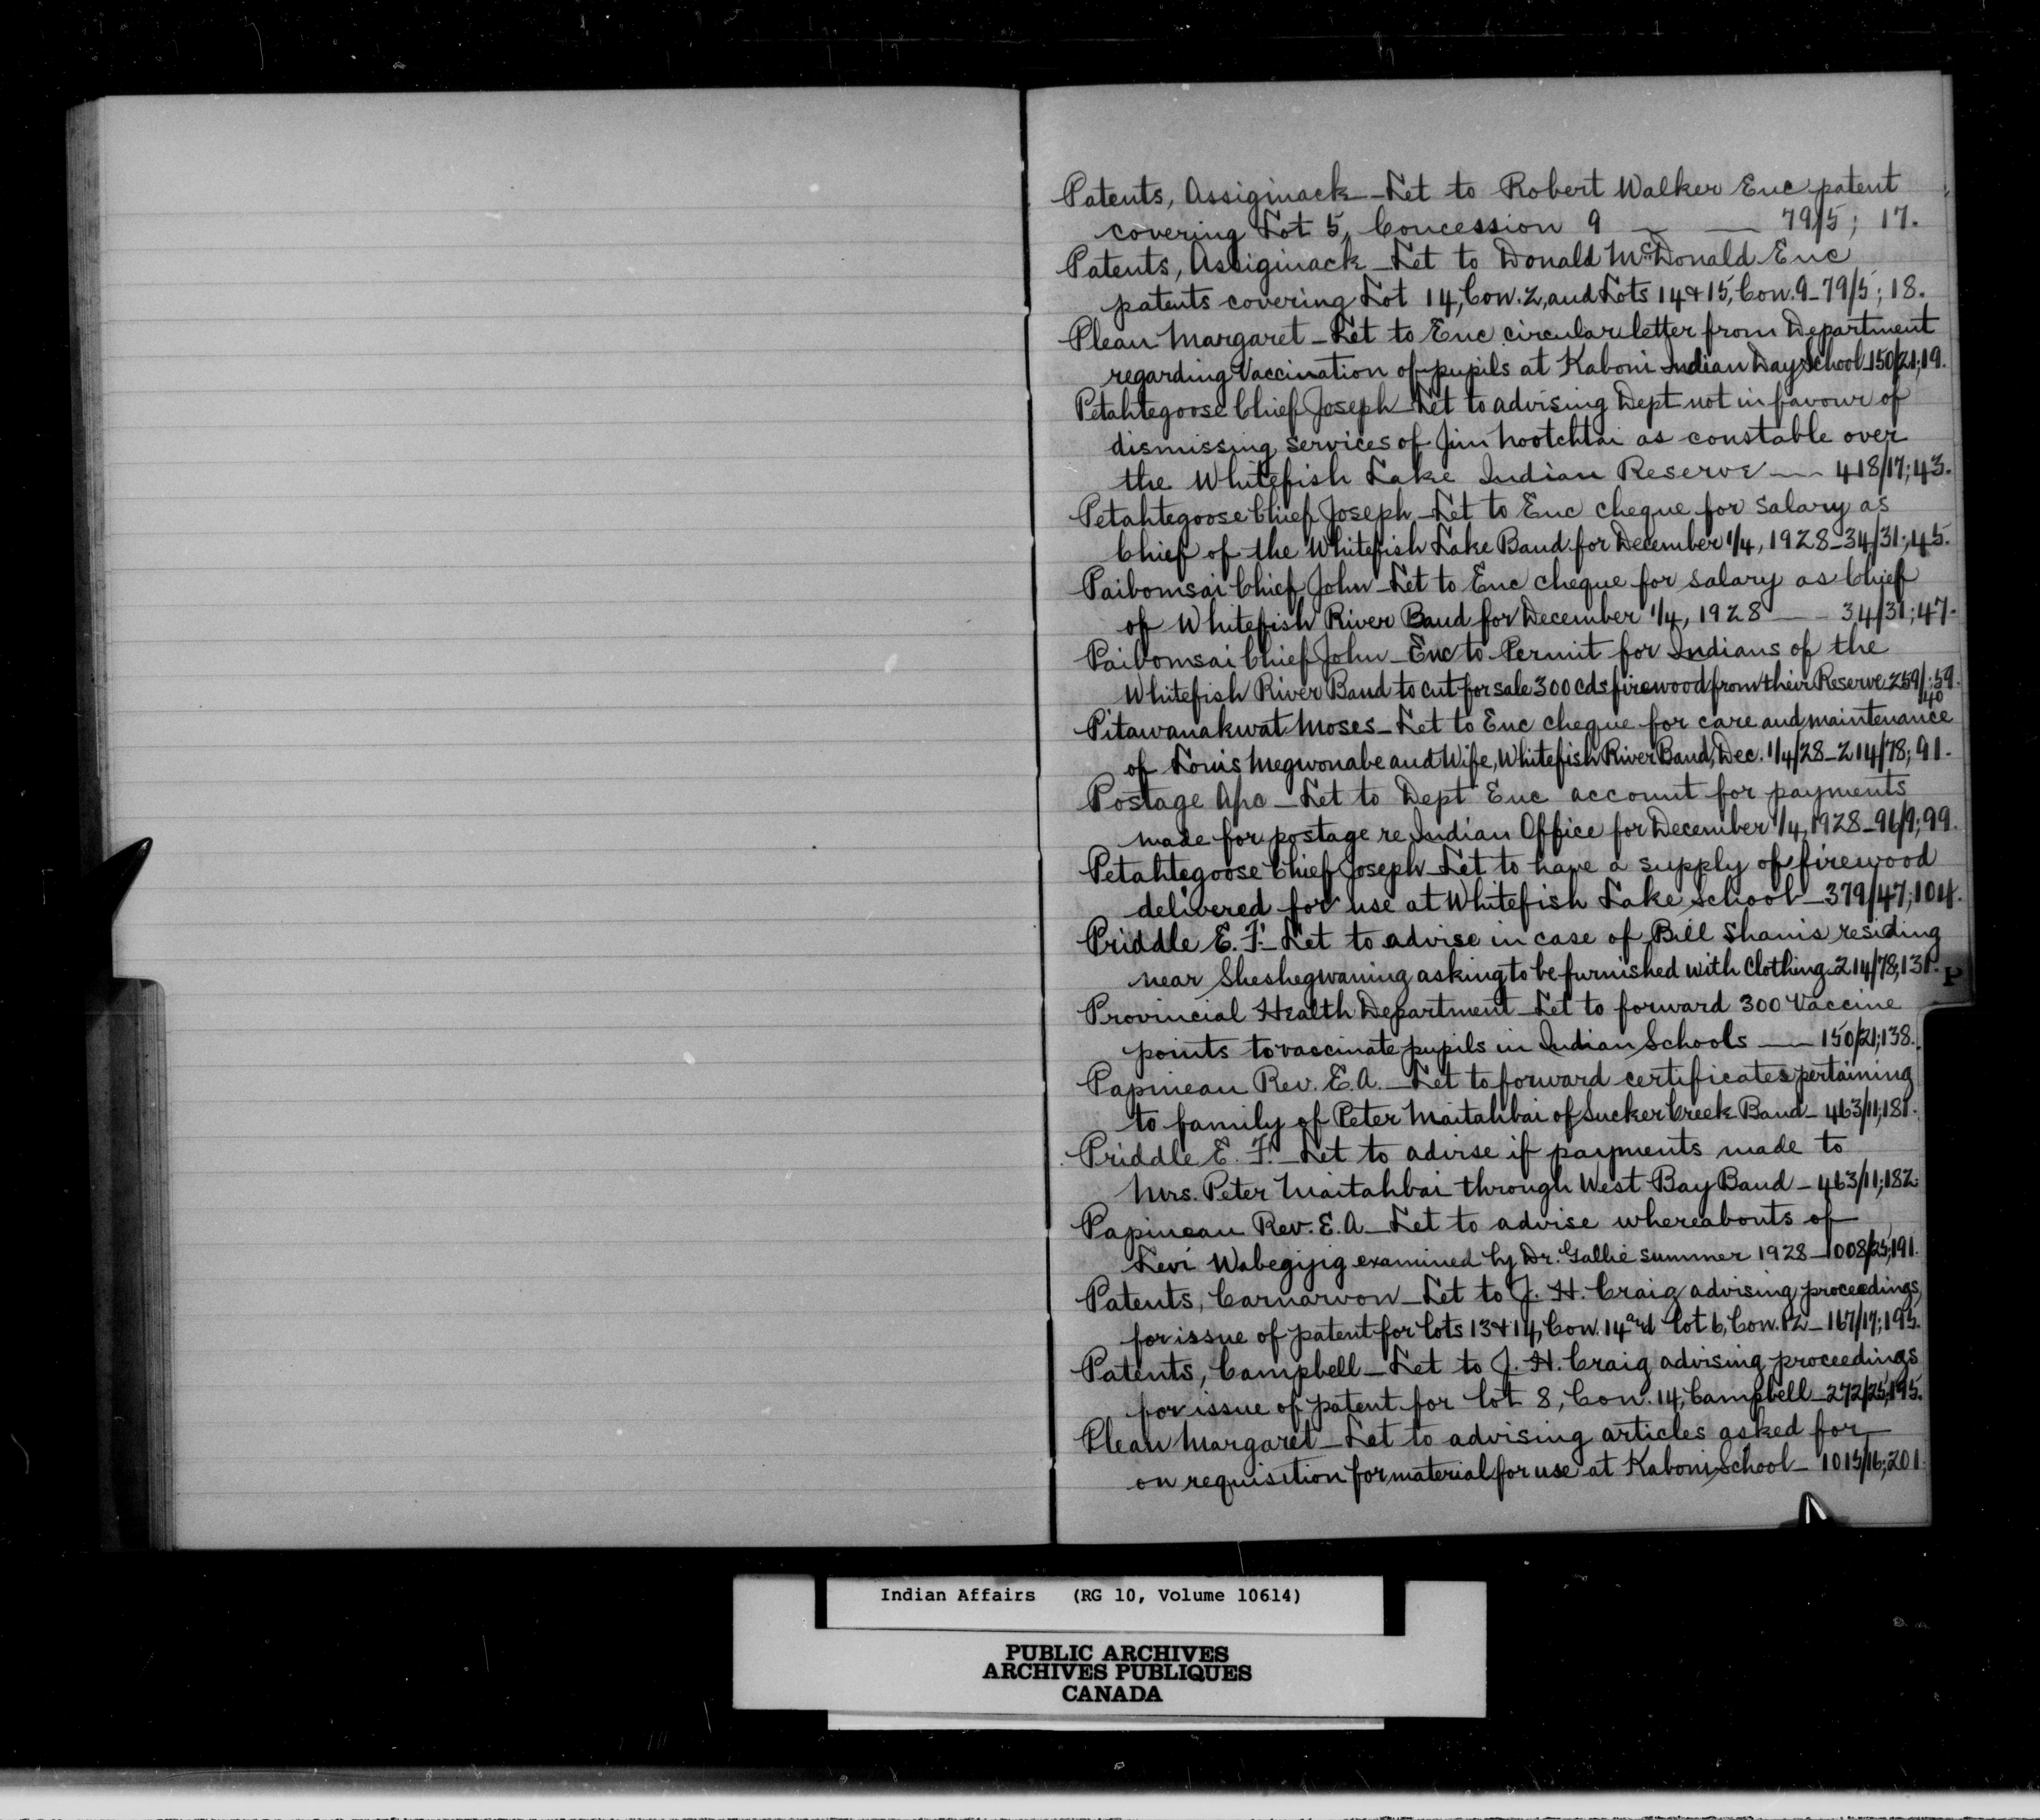 Patents, Assiginack - Let to Robert Walker Enc patent
covering Lot 5, Concession 9 — — 79/5; 17.
Patents, Assiginack - Let to Donald McDonald Enc
patents covering Lot 14, Con. 2, and Lots 14 & 15, Con. 9 - 79/5; 18.
Plean Margaret - Let to Enc circular letter from Department
regarding Vaccination of pupils at Kaboni Indian Day School - 150/21; 19.
Petahtegoose Chief Joseph - Let to advising Dept not in favour of
dismissing services of Jim Nootchtai as constable over
the Whitefish Lake Indian Reserve — 418/17; 43.
Petahtegoose Chief Joseph - Let to Enc cheque for salary as
Chief of the Whitefish Lake Band for December 1/4, 1928 - 34/31; 45.
Paibomsai Chief John - Let to Enc cheque for salary as Chief
of Whitefish River Band for December 1/4, 1928 — 34/31; 47.
Paibomsai Chief John - Enc to Permit for Indians of the
Whitefish River Band to cut for sale 300 cds firewood from their Reserve 259/40; 59.
Pitawanakwat Moses - Let to Enc cheque for care and maintenance
of Louis Megwonabe and Wife, Whitefish River Band, Dec. 1/4/28 - 214/78; 91.
Postage A/c - Let to Dept Enc account for payments
made for postage re Indian Office for December 1/4, 1928 - 96/9; 99.
Petahtegoose Chief Joseph - Let to have a supply of firewood
delivered for use at Whitefish Lake School - 379/47; 104.
Priddle E. F. - Let to advise in case of Bill Shanis residing
near Sheshegwaning asking to be furnished with Clothing - 214/78; 131.
P
Provincial Health Department - Let to forward 300 Vaccine
points to vaccinate pupils in Indian Schools — 150/21; 138.
Papineau Rev. E. A. - Let to forward certificates pertaining
to family of Peter Maitahbai of Sucker Creek Band - 463/11; 181.
Priddle E. F. - Let to advise if payments made to
Mrs. Peter Maitahbai through West Bay Band - 463/11; 182.
Papineau Rev. E. A. - Let to advise whereabouts of
Levi Wabegijig examined by Dr. Gallie summer 1928 - 1008/25; 191.
Patents, Carnarvon - Let to J. H. Craig advising proceedings,
for issue of patent for Lots 13 & 14, Con. 14 and Lot 6, Con. 12 - 167/17; 195.
Patents, Campbell - Let to J. H. Craig advising proceedings
for issue of patent for Lot 8, Con. 14, Campbell - 272/25; 195.
Plean Margaret - Let to advising articles asked for
on requisition for material for use at Kaboni School - 1015/16; 201.
Indian Affairs (RG 10, Volume 10614)
PUBLIC ARCHIVES
ARCHIVES PUBLIQUES
CANADA